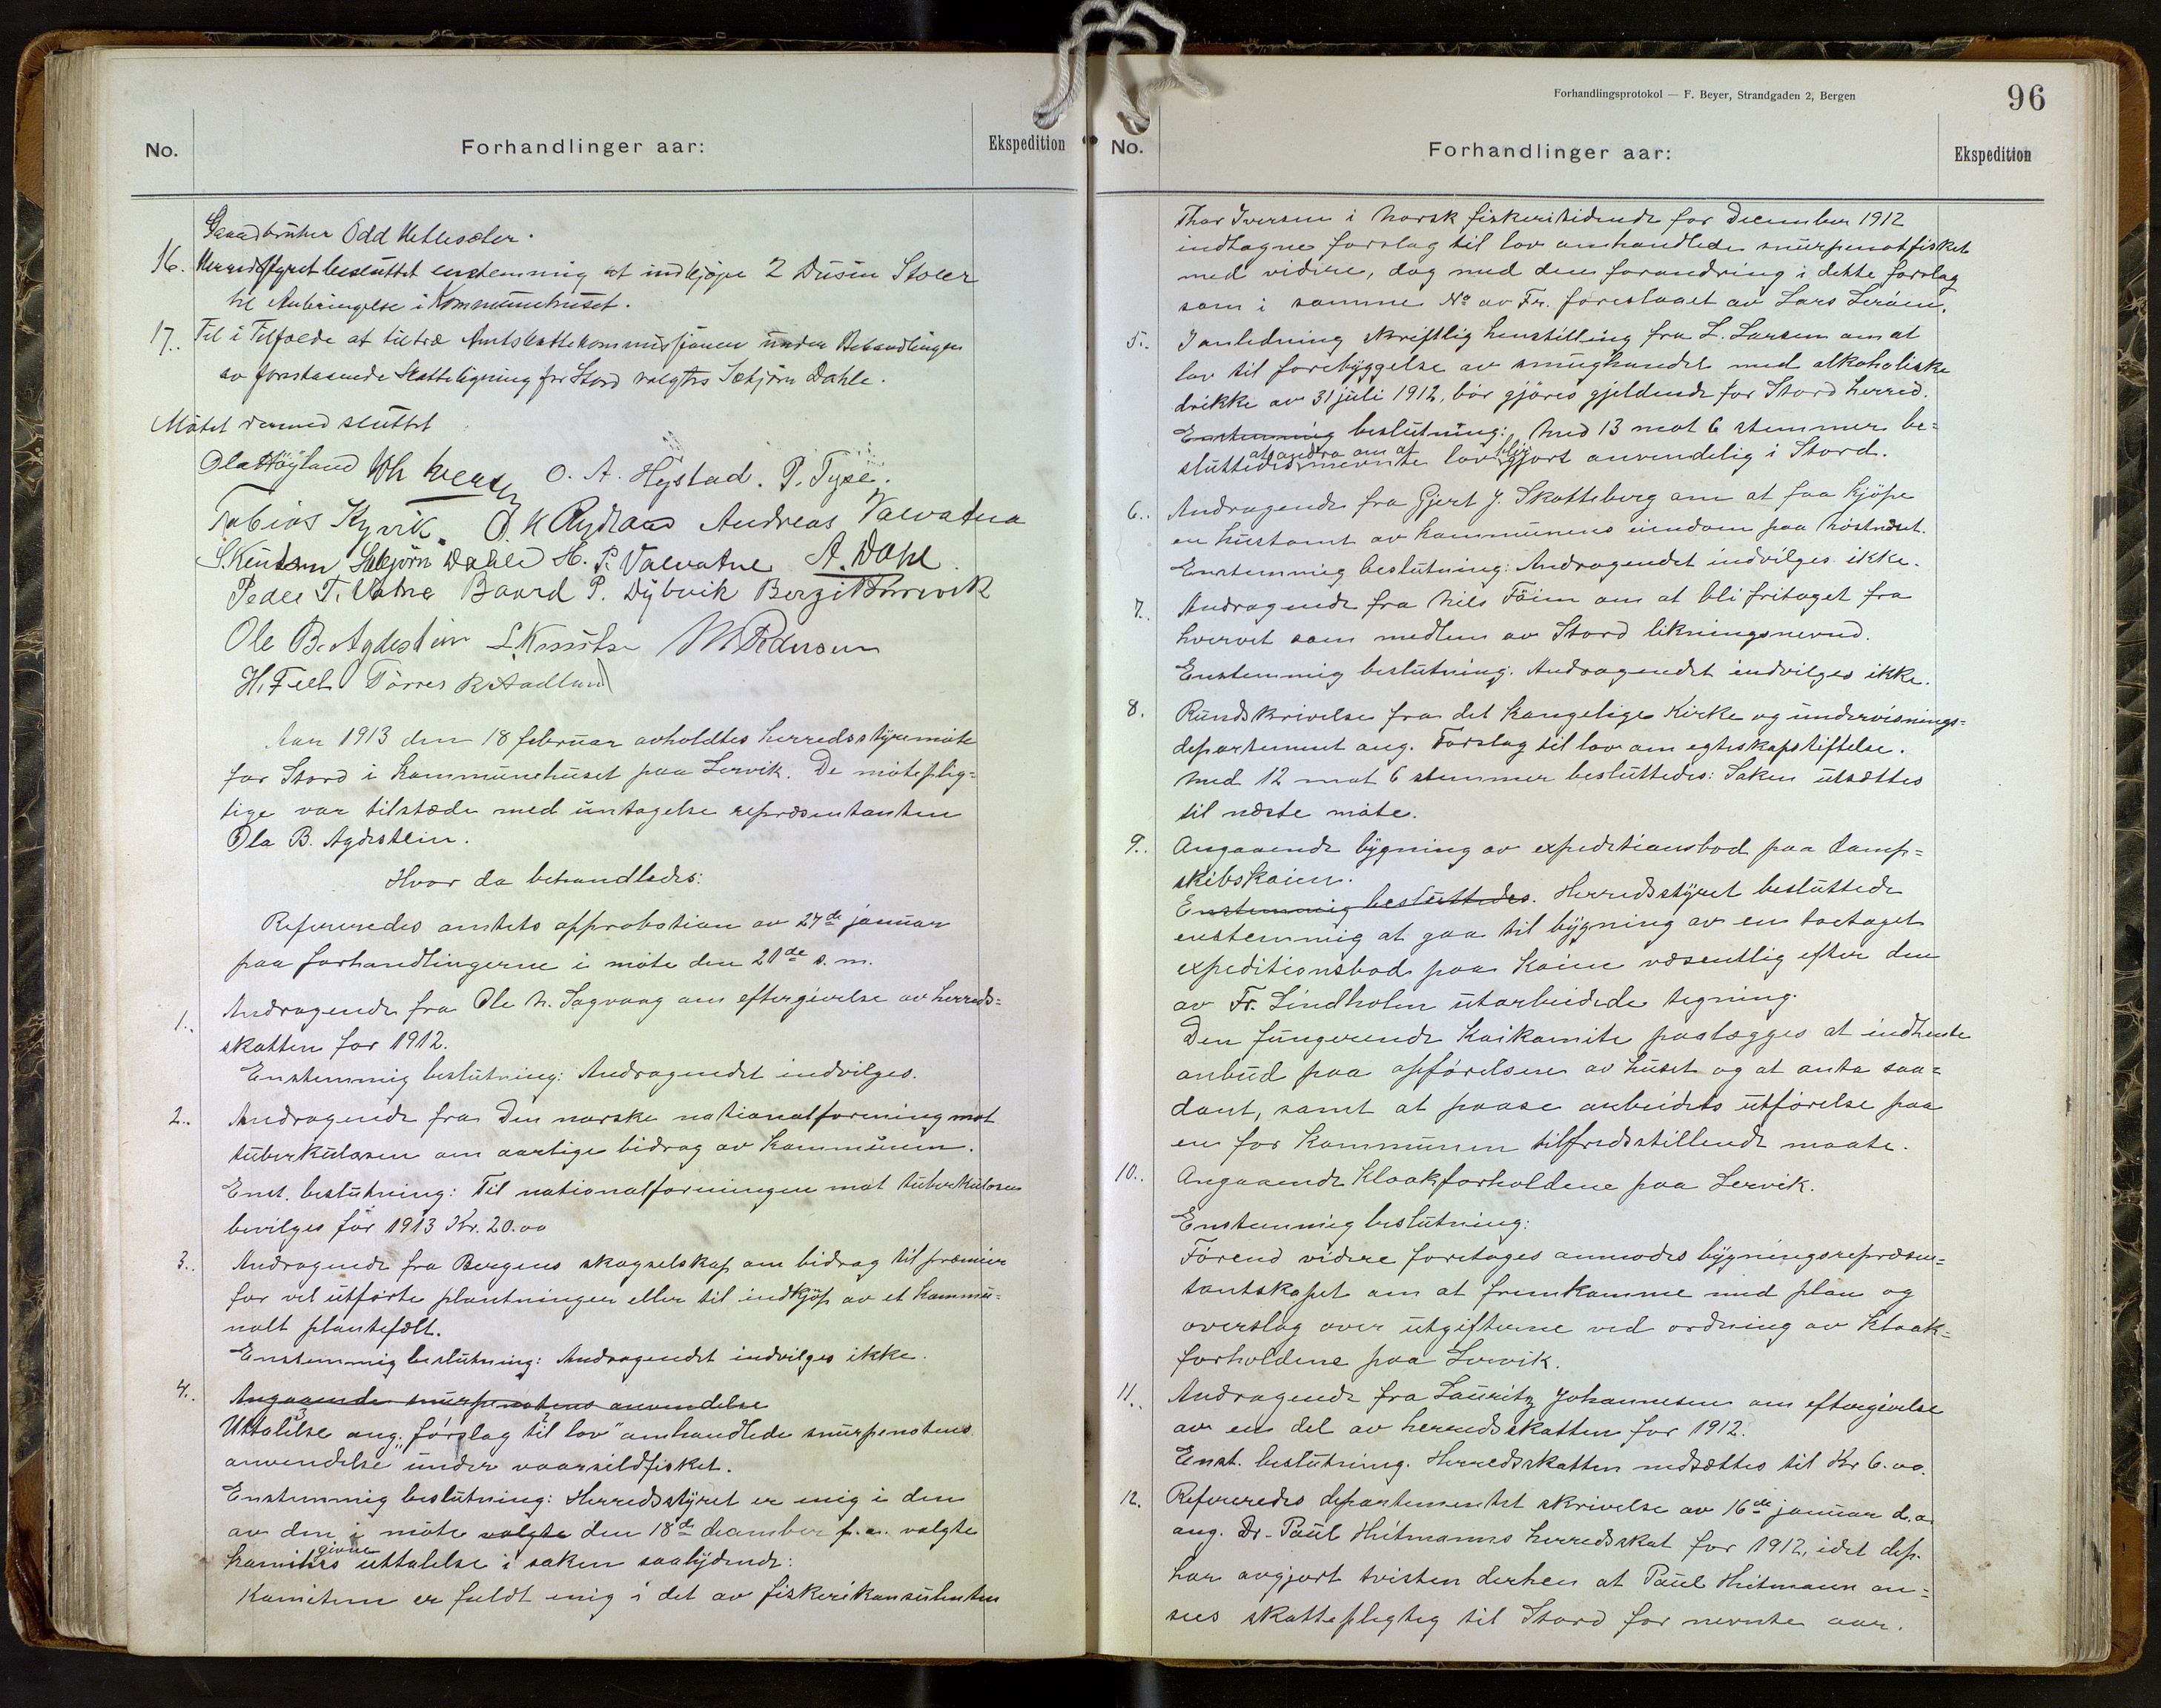 No.
Forhandlinger aar:
Ekspedition
Gaardbruker Odd Kettesæter.
16. Herredstyret besluttet enstemmig at indkjøpe 2 Dusin Stoler
til Anbringelse i Kommunehuset.
17. Til i Tilfælde at tiltræ Amtskattekommissjonen under Behandlingen
av forestaaende Skatteligning for Stord valgtes Sæbjørn Dahle.
Møtet dermed sluttet
Ola Høyland O. A. Hystad. P. Tyse.
Tobias Kyvik. O. K. Rydland Andreas Valvatna
S. Knutsen Sæbjørn Dahle H. P. Valvatne A. Dahl.
Peder T. Vatna Baard P. Dybvik
Ole B. Agdestein L. Knutse
H. Feet Tørres R. Aadland
Aar 1913 den 18 februar avholdtes herredsstyremøte
for Stord i kommunehuset paa Lervik. De møteplig-
tige var tilstæde med untagelse repræsentanten
Ola B. Agdestein.
Hvor da behandledes:
Refereredes amtets approbation av 27de januar
paa forhandlingerne i møte den 20de s. m.
1. Andragende fra Ole N. Sagvaag om eftergivelse av herreds-
skatten for 1912.
Enstemmig beslutning: Andragendet indvilges.
2. Andragende fra Den norske nationalforening mot
tuberkulosen om aarlige bidrag av kommunen.
Enst. beslutning: Til nationalforeningen mot tuberkulosen
bevilges for 1913 Kr. 20.00
3. Andragende fra Bergens skogselskap om bidrag til præmier
for vel utførte plantninger eller til indkjøp av et kommu-
nalt plantefelt.
Enstemmig beslutning: Andragendet indvilges ikke.
4. Angaaende snurpenotens anvendelse
Uttalelse ang. "forslag til lov" omhandlede snurpenotens
anvendelse under vaarsildfisket.
Enstemmig beslutning: Herredsstyret er enig i den
av den i møte valgte den 18de december f. a. valgte
komites givne uttalelse i saken saalydende:
Komiteen er fuldt enig i det av fiskerikonsulenten
Forhandlingsprotokol — F. Beyer, Strandgaden 2, Bergen
96
No.
Forhandlinger aar:
Ekspedition
Thor Iversen i Norsk fiskeritidende for December 1912
indtagne forslag til lov omhandlede snurpenotfisket
med videre, dog med den forandring i dette forslag
som i samme No av Fr. foreslaaet av Lars Lerøen.
5. I anledning skriftlig henstilling fra L. Larsen om at
lov til forebyggelse av smughandel med alkoholiske
drikke av 31 juli 1912, bør gjøres gjeldende for Stord herred.
Enstemmig beslutning: Med 13 mot 6 stemmer be-
sluttedes at andra om at nevnte lov blir gjort anvendelig i Stord.
6. Andragende fra Gjert J. Skotteberg om at faa kjøpe
en hustomt av kommunens eiendom paa
Enstemmig beslutning: Andragendet indvilges ikke.
7. Andragende fra Nils Føien om at bli fritaget fra
hvervet som medlem av Stord likningsnevnd.
Enstemmig beslutning: Andragendet indvilges ikke.
8. Rundskrivelse fra det kongelige Kirke og undervisnings-
departement ang. Forslag til lov om egteskapstiftelse.
Med 12 mot 6 stemmer besluttedes: Saken utsættes
til næste møte.
9. Angaaende bygning av expeditionsbod paa damp-
skibskaien.
Enstemmig besluttedes. Herredsstyret besluttede
enstemmig at gaa til bygning av en toetaget
expeditionsbod paa kaien væsentlig efter den
av Fr. Lindholm utarbeidede tegning.
Den fungerende kaikomite paalægges at indhente
anbud paa opførelsen av huset og at anta saa-
dant, samt at paase arbeidets utførelse paa
en for kommunen tilfredsstillende maate.
10. Angaaende kloakforholdene paa Lervik.
Enstemmig beslutning:
Førend videre foretages anmodes bygningsrepræsen-
tantskapet om at fremkomme med plan og
overslag over utgifterne ved ordning av kloak-
forholdene paa Lervik.
11. Andragende fra Lauritz Johannesen om eftergivelse
av en del av herredsskatten for 1912.
Enst. beslutning. Herredsskatten nedsættes til Kr 6.00.
12. Refereredes departementet skrivelse av 16de januar d. a.
ang. Dr. Paul Heitmanns herredsskat for 1912, idet dep.
har avgjort tvisten derhen at Paul Heitmann an-
sees skattepligtig til Stord for nevnte aar.